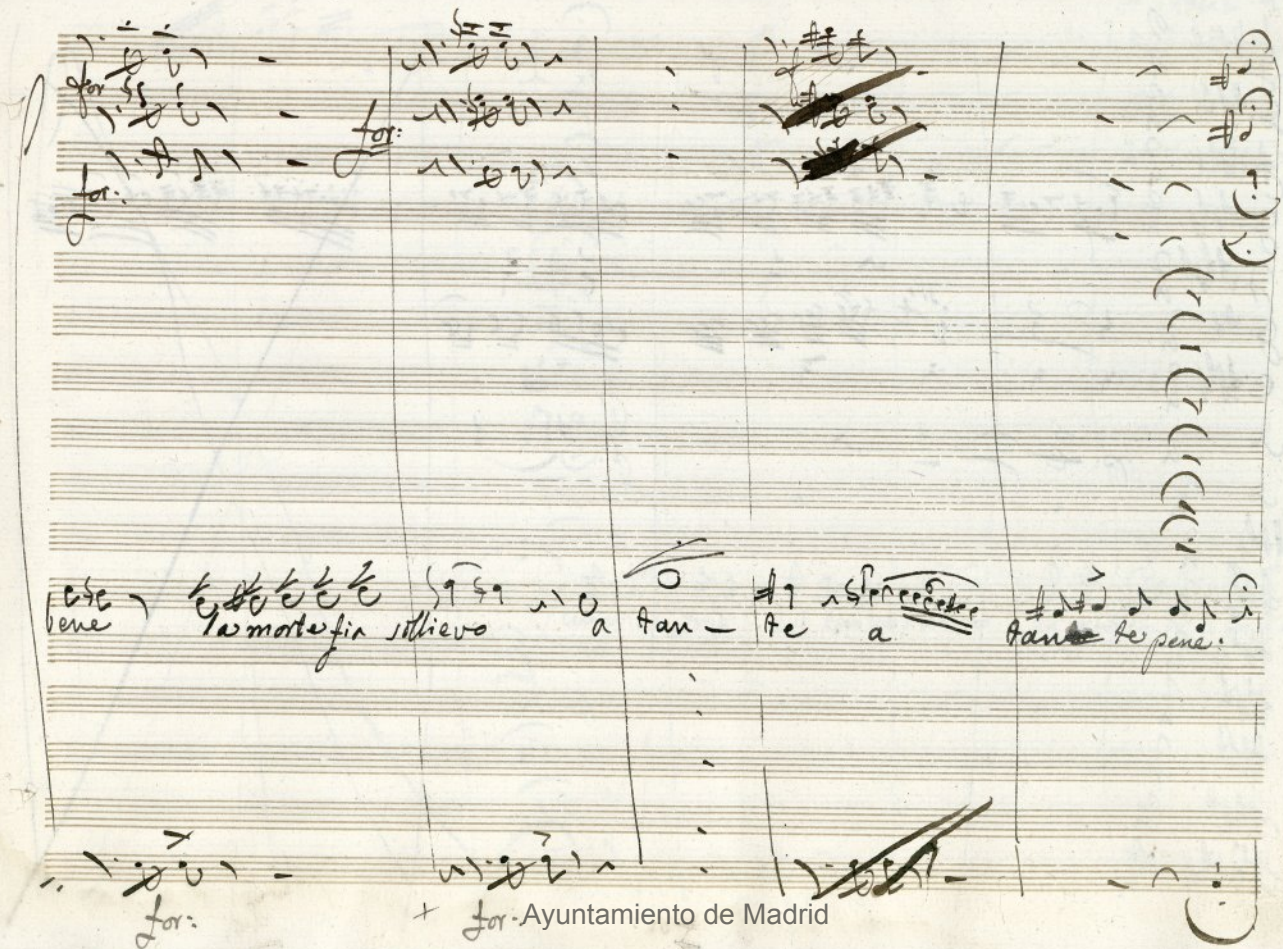 for
for:
for:
bene la morte fin sollievo a tan - te a tante pene:
for:
for.
Ayuntamiento de Madrid